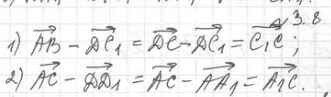 № 3.8
1) \overrightarrow{AB} - \overrightarrow{DC_1} = \overrightarrow{DC} - \overrightarrow{DC_1} = \overrightarrow{C_1C};
2) \overrightarrow{AC} - \overrightarrow{DD_1} = \overrightarrow{AC} - \overrightarrow{AA_1} = \overrightarrow{A_1C}.